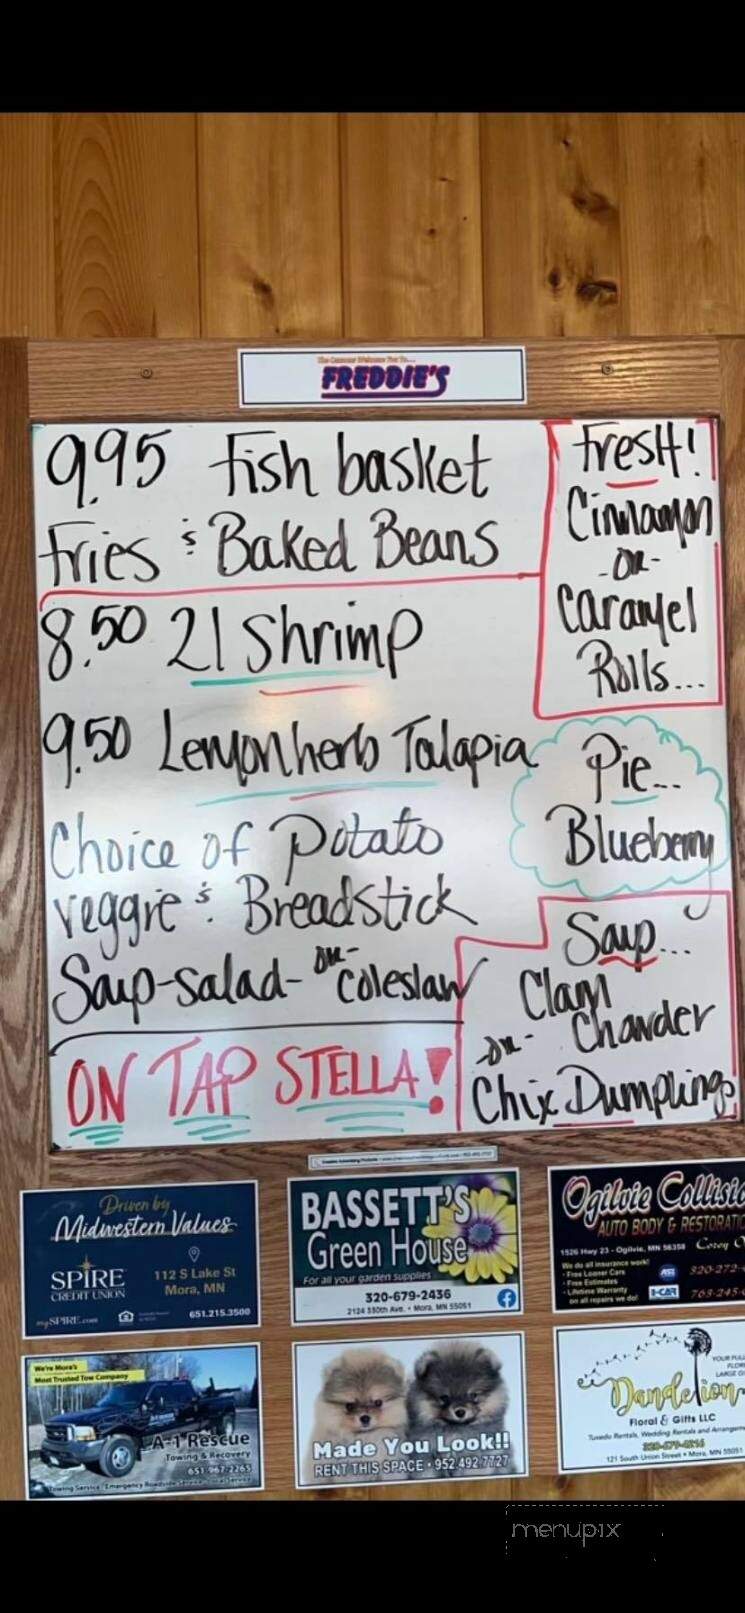 The Corner Welcomes You To...
FREDDIE'S
9.95 Fish basket
Fries & Baked Beans
8.50 21 Shrimp
9.50 Lemonherb Talapia
Choice of Potato
veggie & Breadstick
Soup-salad-or-coleslaw
ON TAP STELLA!
Fresh!
Cinnamon
-or-
Caramel
Rolls...
Pie...
Blueberry
Soup...
Clam
Chowder
-or-
Chix Dumplings
Driven by
Midwestern Values
SPIRE
CREDIT UNION
112 S Lake St
Mora, MN
mySPIRE.com
651.215.3500
BASSETT'S
Green House
For all your garden supplies
320-679-2436
2124 330th Ave. • Mora, MN 55051
Ogilvie Collisio
AUTO BODY & RESTORATIO
1526 Hwy 23 - Ogilvie, MN 56358
Corey O
We do all insurance work!
• Free Loaner Cars
• Free Estimates
• Lifetime Warranty
on all repairs we do!
I-CAR
320-272-
763-245-
We're Mora's
Most Trusted Tow Company
A-1 Rescue
Towing & Recovery
651-967-2265
Towing Service • Emergency Roadside Service
Made You Look!!
RENT THIS SPACE • 952.492.7727
YOUR FUL
FLOR
LARGE G
Dandelion
Floral & Gifts LLC
Tuxedo Rentals, Wedding Rentals and Arrangem
320-679-0216
121 South Union Street • Mora, MN 55051
menupix